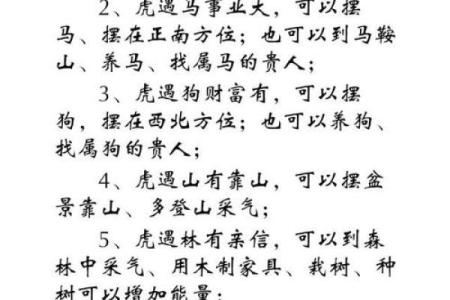 2、虎遇马事业大，可以摆
马、摆在正南方位；也可以到马鞍
山、养马、找属马的贵人；
3、虎遇狗财富有，可以摆
狗，摆在西北方位；也可以养狗、
找属狗的贵人；
4、虎遇山有靠山，可以摆盆
景靠山、多登山采气；
5、虎遇林有亲信，可以到森
林中采气、用木制家具、栽树、种
树可以增加能量；